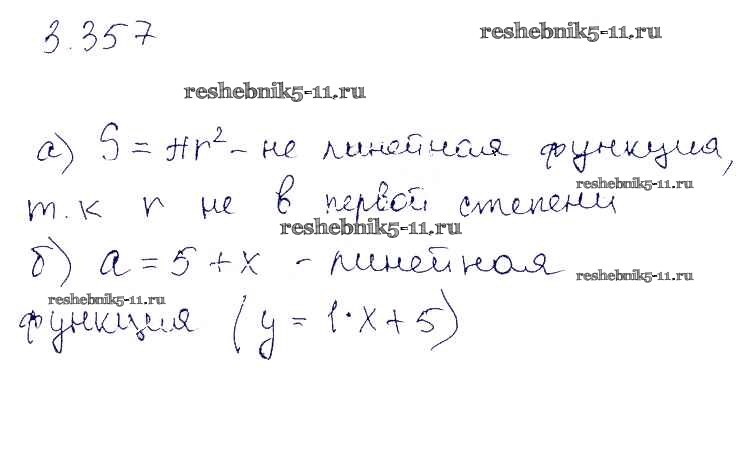 3.357
reshebnik5-11.ru
reshebnik5-11.ru
а) S = πr² - не линейная функция,
reshebnik5-11.ru
т.к r не в первой степени
reshebnik5-11.ru
б) a = 5 + x - линейная
reshebnik5-11.ru
reshebnik5-11.ru
функция (y = 1·x + 5)